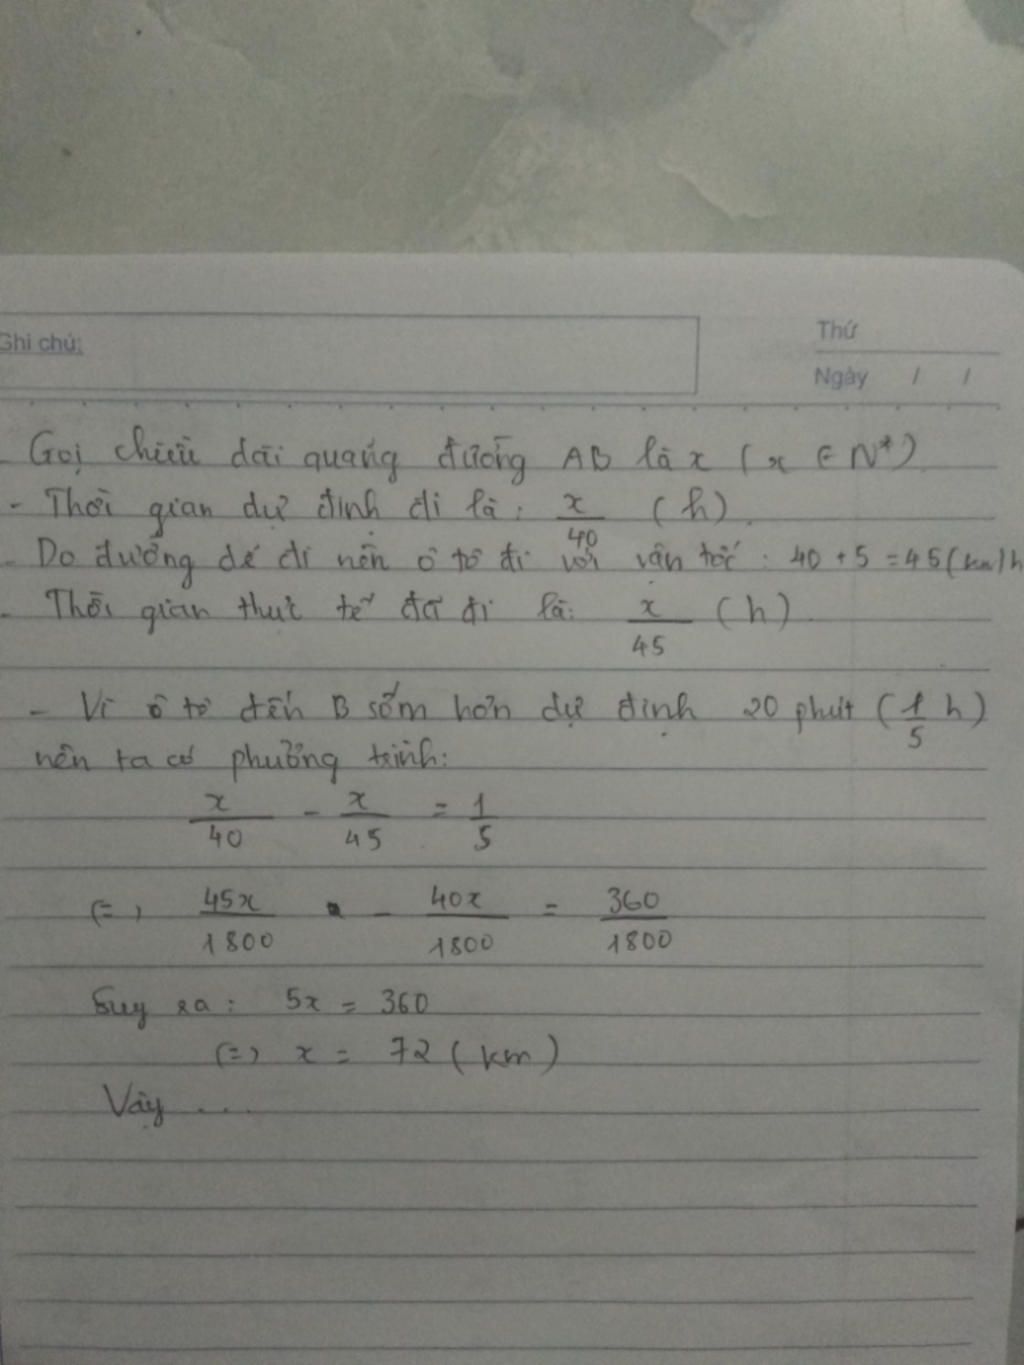 Ghi chú:
Thứ
Ngày / /
- Gọi chiều dài quãng đường AB là x (x ∈ N*)
- Thời gian dự định đi là: x/40 (h)
- Do đường dễ đi nên ô tô đi với vận tốc: 40 + 5 = 45 (km/h
- Thời gian thực tế đã đi là: x/45 (h)
- Vì ô tô đến B sớm hơn dự định 20 phút (1/5 h)
nên ta có phương trình:
x/40 - x/45 = 1/5
(=) 45x/1800 - 40x/1800 = 360/1800
Suy ra: 5x = 360
(=) x = 72 (km)
Vậy ...